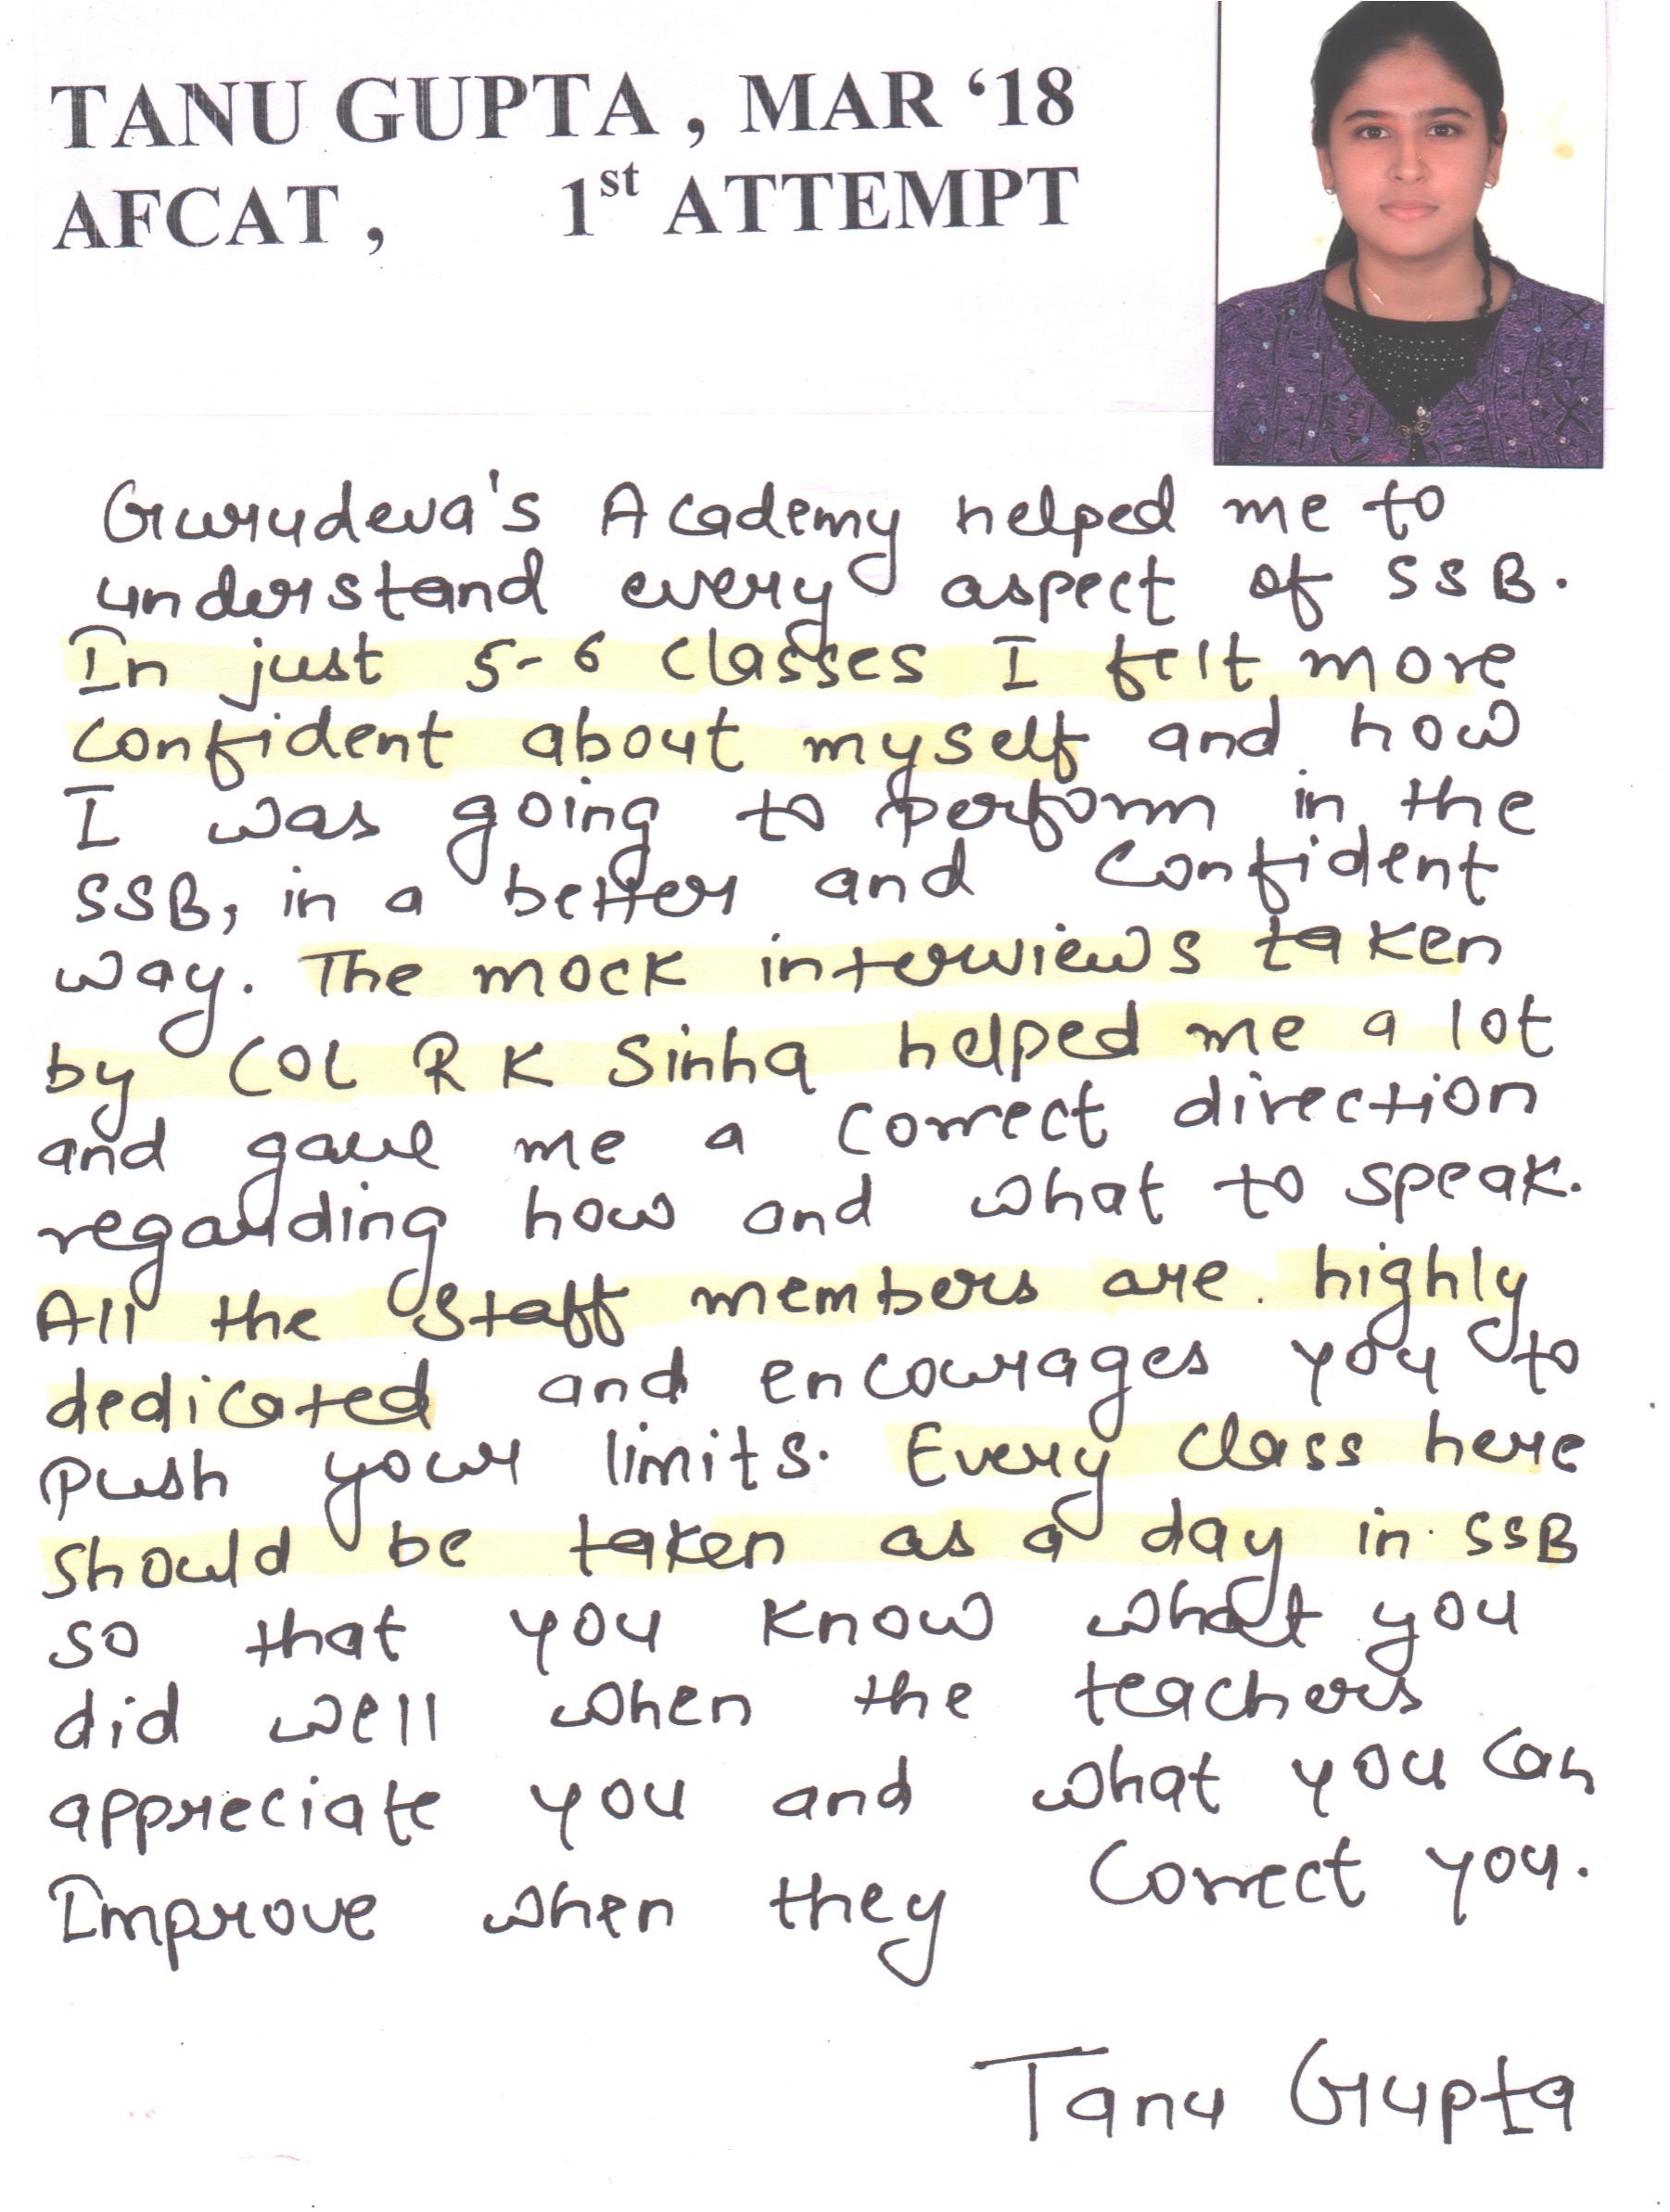 TANU GUPTA , MAR ‘18
AFCAT , 1st ATTEMPT
Gurudeva's Academy helped me to
understand every aspect of SSB.
In just 5-6 classes I felt more
confident about myself and how
I was going to perform in the
SSB, in a better and confident
way. The mock interviews taken
by COL R K Sinha helped me a lot
and gave me a correct direction
regarding how and what to speak.
All the Staff members are highly
dedicated and encourages you to
Push your limits. Every class here
should be taken as a day in SSB
so that you know what you
did well when the teachers
appreciate you and what you can
Improve when they correct you.
Tanu Gupta